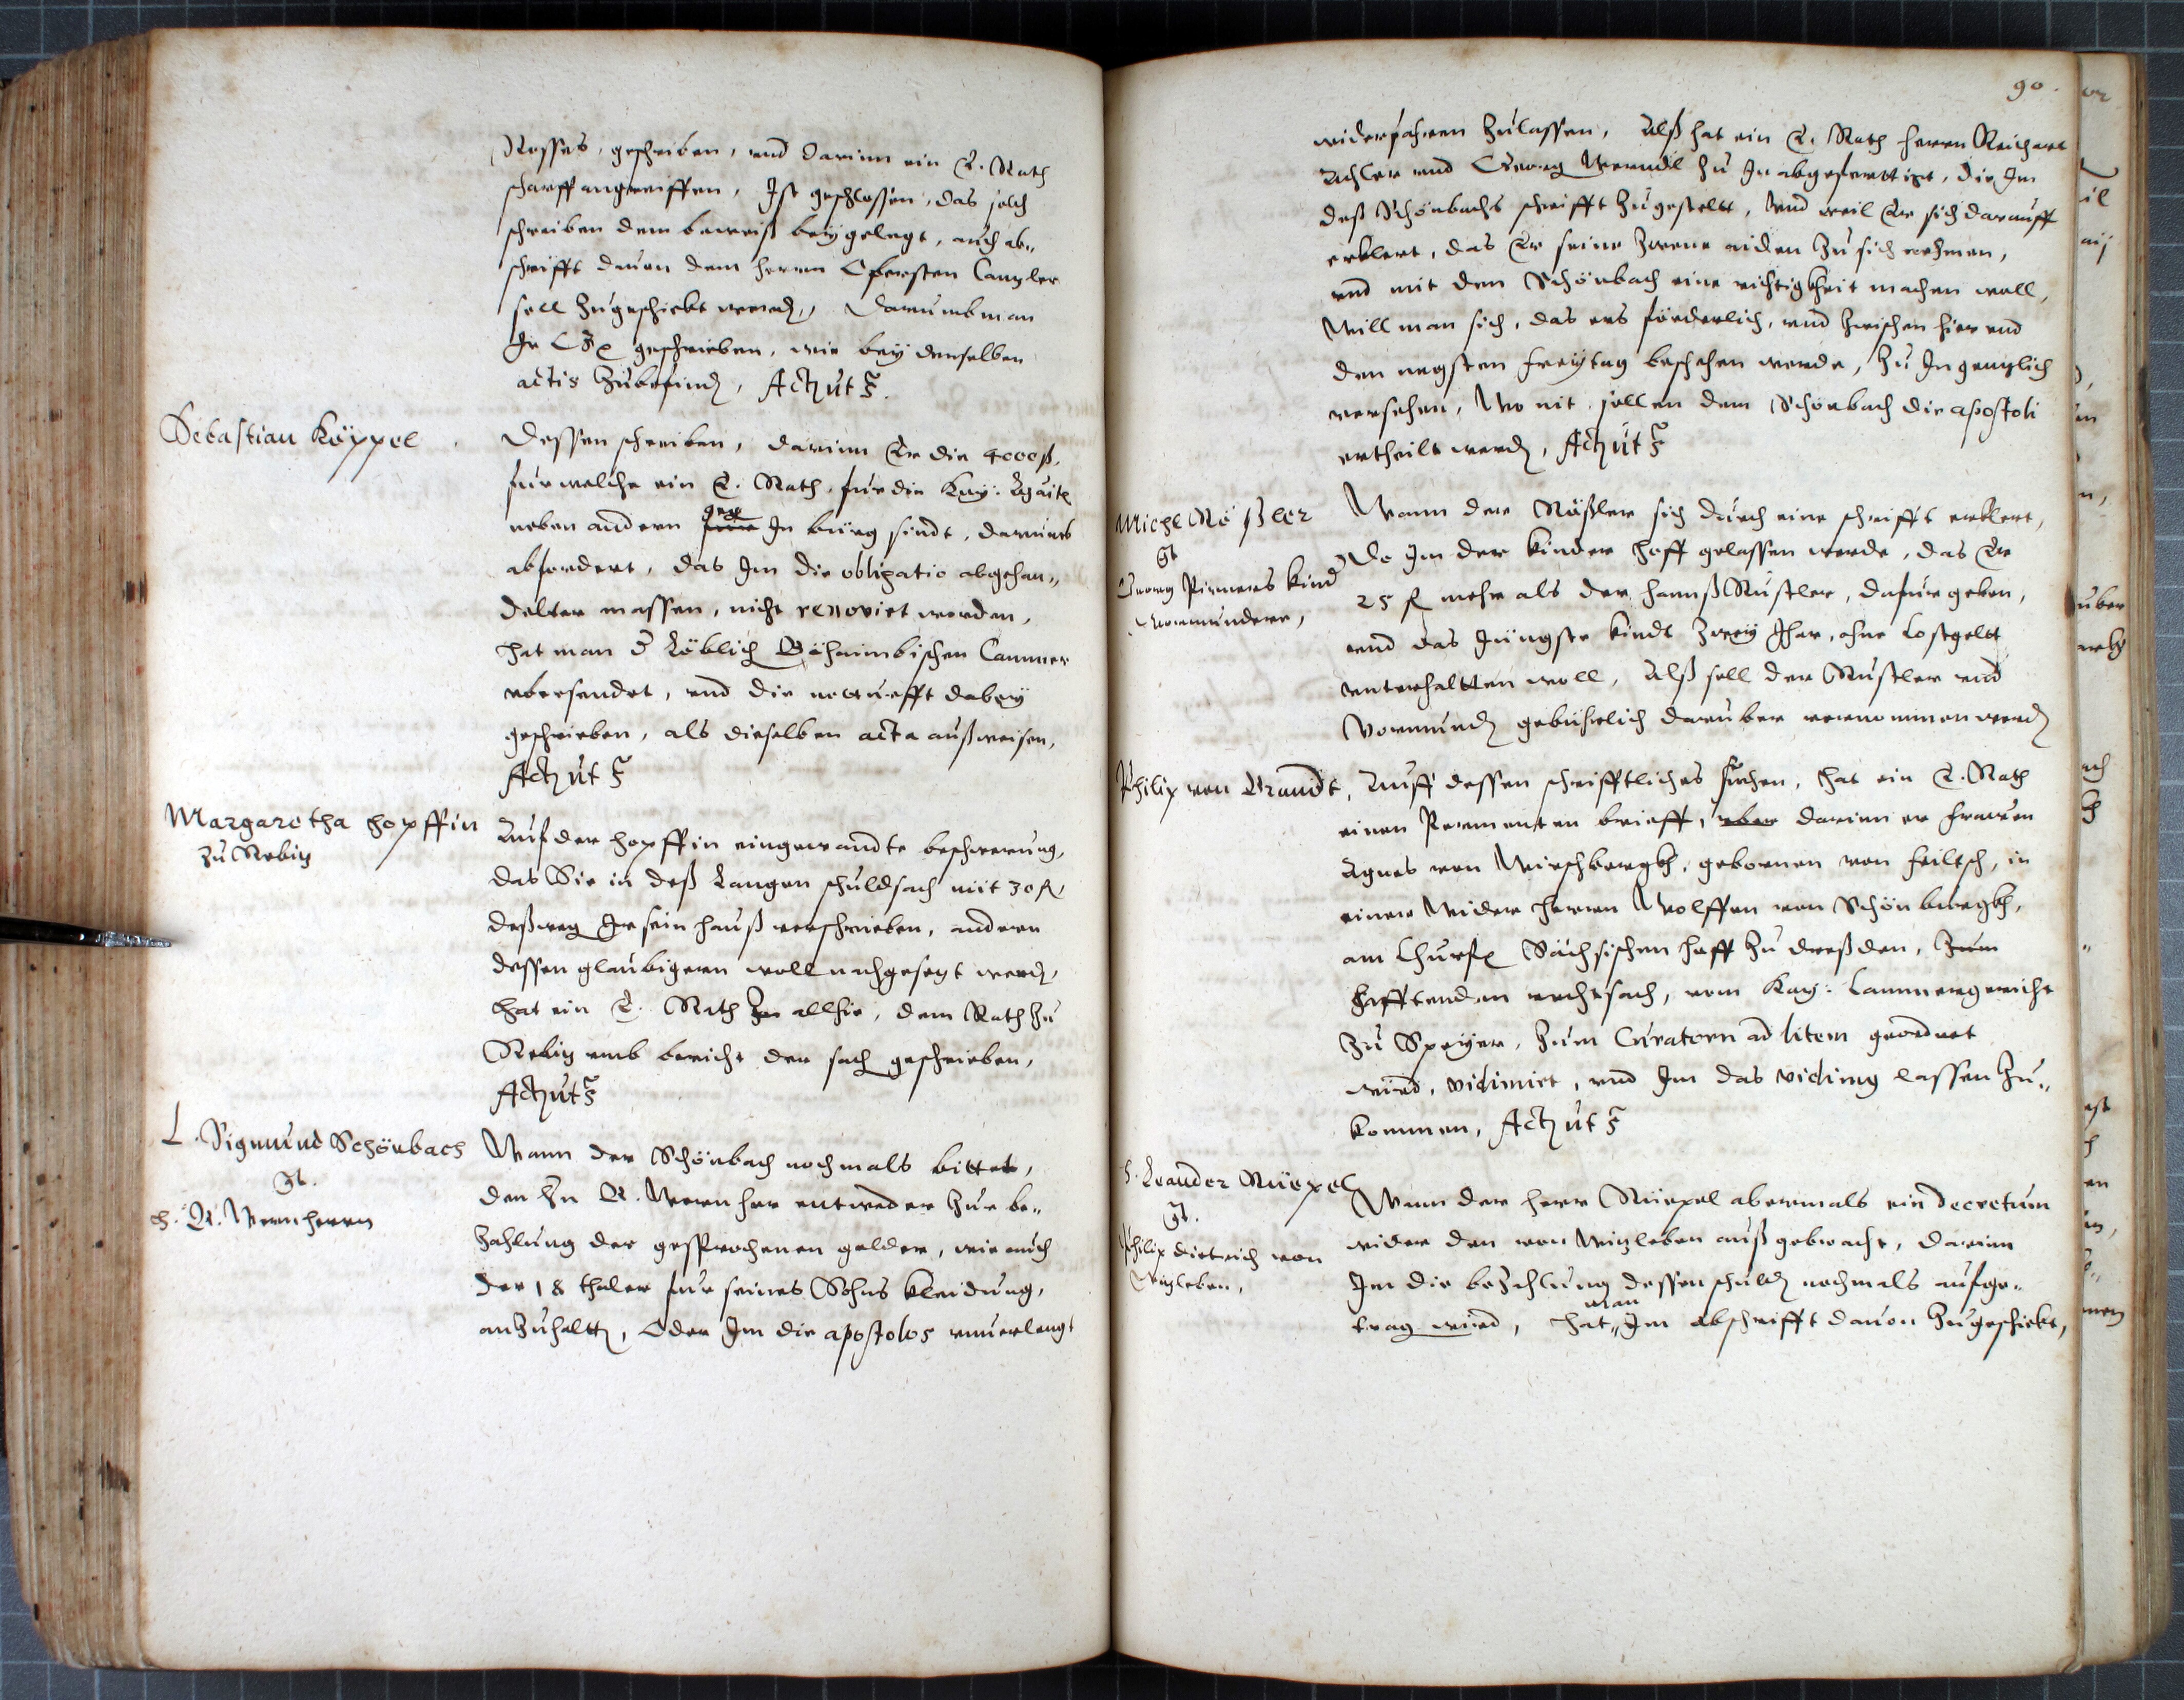 Rosses, geschriben, vnd darinn ein E. Rath
scharff angreiffen, Ist geschlossen, das solch
schreiben dem beweiß beygelegt, auch ab„
schrifft dauon dem herrn Obersten Cantzler
soll zugeschickt werd, Darumb man
geschrieben, wie bey denselben
actis zubefind, Act ut s.
Sebastian Köppel
Dessen schreiben, darinn Er die 4000 ß,
fur welche ein E. Rath, fur die Kay:
neben andern In bürg sindt, darumb
abfordert, das Im die obligatio abgehan„
delter massen, nicht renovirt worden,
hat man d Löblich Böhaimbischen Cammer
vbersendet, vnd die notturfft dabey
geschrieben, als dieselben acta außweisen,
Act ut s
Margaretha Hopffin
zu Rebitz
Auf der Hopffin eingewandte beschwerung,
das Sie in deß Langen schuldsach mit 30 fl,
deßweg Ir sein hauß verschrieben, andern
dessen glaubigern woll nachgesetzt werd,
hat ein E. Rath allhie, dem Rath zu
Rebitz vmb bericht der sach geschrieben,
Act ut s
L. Sigmund Schönbach
gt.
h. A. Wernherrn
Wann der Schönbach nochmals bittet,
den hn A. Wernher entweder zur be„
zahlung der gesprochenen gelder, wie auch
der 18 thaler fur seines Sohns kleidung,
anzuhaltt, Oder Im die apostolos vnuerlengt
90.
widerfahren zulassen, Alß hat ein E. Rath herrn Reichart
Achler vnd Georg Werndl zu Im abgeferttigt, die Im
deß Schönbachs schrifft zugestelt, Vnd weil Er sich darauff
erklert, das Er seine zwene aiden zu sich nehmen,
vnd mit dem Schönbach eine richtigkheit machen woll,
Will man sich, das ers förderlich, vnd zwischen hier vnd
den negsten freytag beschehen werde, zu Im gentzlich
versehen, Wo nit, sollen dem Schönbach die apostoli
ertheilt werd, Act ut s
Michl Rößler
gt
Georg Pirners kind
Vormundere,
Wann der Rößler sich durch eine schrifft erklert,
Do Im der kinder hoff gelassen werde, das Er
25 fl mehr als der Hannß Rustler, dafur geben,
vnd das Jüngste kindt zwey Jhar, ohne Costgeltt
vnterhaltten woll, Alß soll der Rustler vnd
Vormund gebührlich daruber vernommen werd
Philip von Brandt,
Auff dessen schrifftliches suchen, hat ein E. Rath
einen Permenten brieff, darinn er frawen
Agnes von Wirschbergkh, gebornen von Feiltsch, in
einer wider herrn Wolffen von Schönbergkh,
am Churf Sächsischen hoff zu dreßden,
hafftenden rechtsach, vom Kay: Cammergericht
zu Speyer, zum Curatorn ad litem geordnet
wird, vidimirt, vnd Im das vidimus lassen zu„
kommen, Act ut s
h. Leander Rüepel
gt.
Philip dietrich von
Witzleben,
Wann der herr Rüepel abermals ein decretum
wider den von Witzleben außgebracht, darinn
Im die bezahlung dessen schuld nochmals aufge„
trag wird, hat man Im abschrifft dauon zugeschickt,